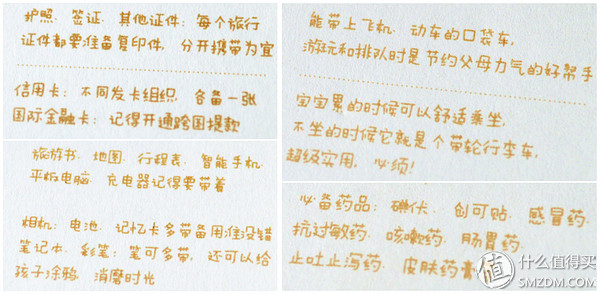 护照、签证、其他证件：每个旅行
证件都要准备复印件，分开携带为宜
信用卡：不同发卡组织，各备一张
国际金融卡：记得开通跨国提款
旅游书、地图、行程表、智能手机、
平板电脑、充电器记得要带着
相机：电池、记忆卡多带备用准没错
笔记本、彩笔：笔可多带，还可以给
孩子涂鸦，消磨时光
能带上飞机、动车的口袋车，
游玩和排队时是节约父母力气的好帮手
宝宝累的时候可以舒适乘坐，
不坐的时候它就是个带轮行李车，
超级实用，必须！
必备药品：碘伏、创可贴、感冒药、
抗过敏药、咳嗽药、肠胃药、
止吐止泻药、皮肤药膏
值 什么值得买
SMZDM.COM